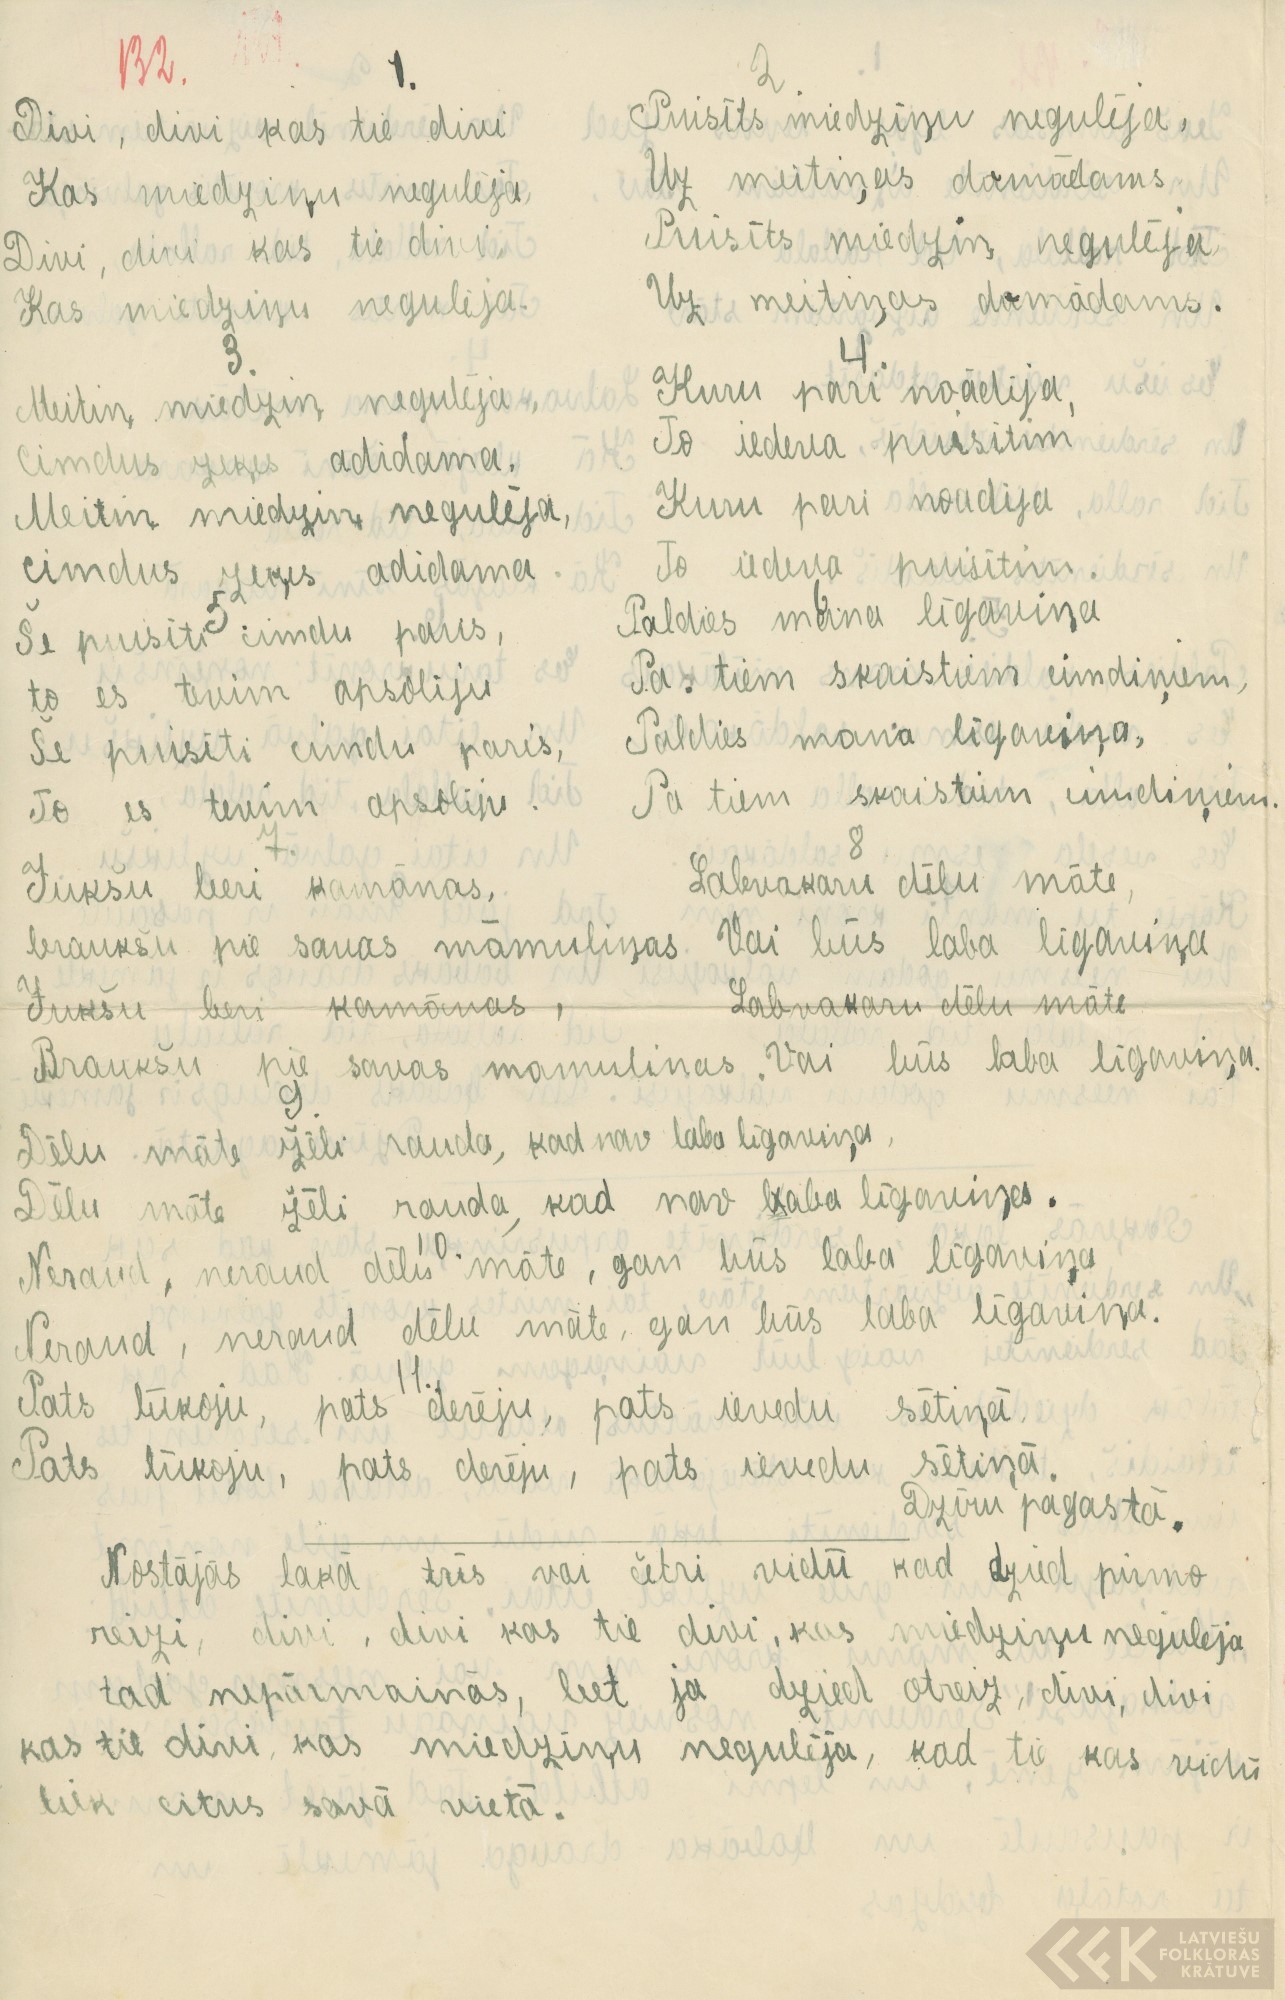 132.
1.
Divi, divi kas tie divi
Kas miedziņu negulēja,
Divi, divi kas tie divi,
Kas miedziņu negulēja.
2
Puisīts miedziņu negulēja,
Uz meitiņas domādams.
Puisīts miedziņ negulēja
Uz meitiņas domādams.
3.
Meitiņ miedziņ negulēja,
Cimdus zeķes adidama.
Meitiņ miedziņ negulēja,
cimdus zeķes adidama.
4.
Kuru pāri noādija,
To iedeva puisītim
Kuru pari noadija
To iedeva puisītim.
5
Še puisīti cimdu pāris,
to es tevim apsōliju
Še puisīti cimdu paris,
To es tevim apsōliju.
6
Paldies mana līgaviņa
Pa tiem skaistiem cimdiņiem,
Paldies mana līgaviņa,
Pa tiem skaistiem cimdiņiem.
7.
Jukšu beri kamānas,
braukšu pie savas māmuliņas
Jukšu beri kamānas,
Braukšu pie savas mamulinas.
8
Labvakaru dēlu māte,
Vai būs laba līgaviņa
Labvakaru dēlu māte
Vai būs laba līgaviņa.
9.
Dēlu māte žēli rauda, kad nav laba līgaviņa,
Dēlu māte žēli rauda, kad nav laba līgaviņa.
10.
Neraud, neraud dēlu māte, gan būs laba līgaviņa
Neraud, neraud dēlu māte, gan būs laba līgaviņa.
11.
Pats lūkoju, pats derēju, pats ievedu sētiņā.
Pats lūkoju, pats derēju, pats ievedu sētiņā.
Dzīru pagastā.
Nostājās lakā trīs vai četri vidū kad dzied pirmo
reizi, divi, divi kas tie divi, kas miedziņu negulēja,
tad nepārmainās, bet ja dzied otreiz, divi, divi
kas tie divi, kas miedziņu negulēja, kad tie kas vidū
liek citus savā vietā.
LATVIEŠU
FOLKLORAS
KRĀTUVE